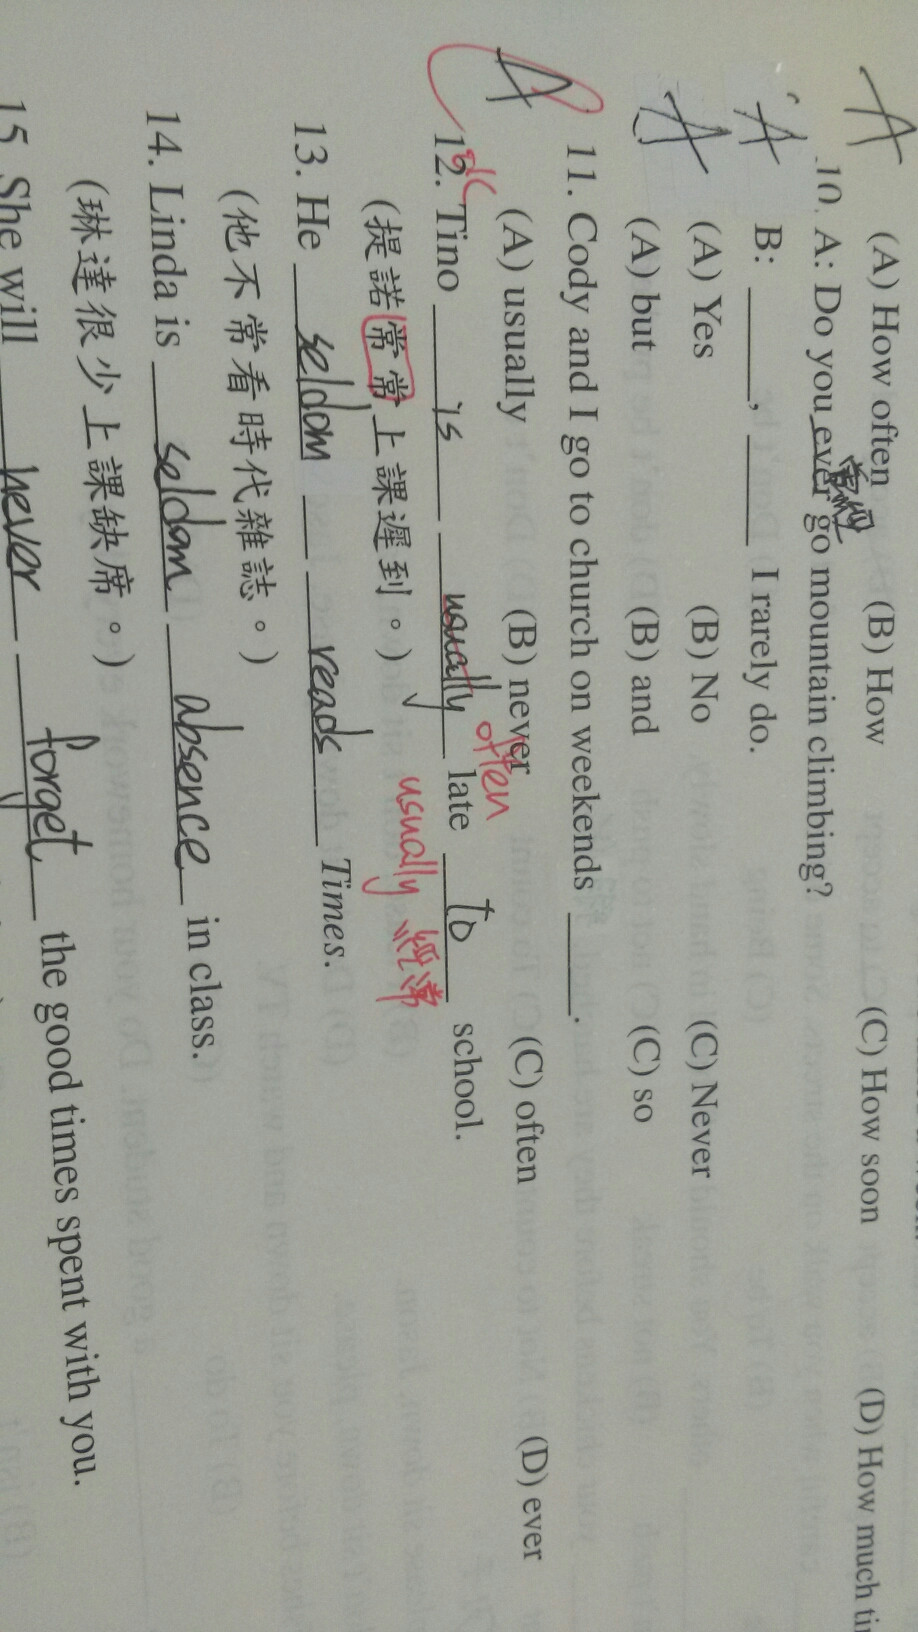 A (A) How often (B) How (C) How soon (D) How much
10. A: Do you ever go mountain climbing?
A B: ______, ______ I rarely do.
(A) Yes (B) No (C) Never
A (A) but (B) and (C) so
11. Cody and I go to church on weekends ______.
A (A) usually (B) never (C) often (D) ever
12. Tino is usually often late to school.
(提諾常常上課遲到。) usually 經常
13. He seldom reads Times.
(他不常看時代雜誌。)
14. Linda is seldom absence in class.
(琳達很少上課缺席。)
15. She will never forget the good times spent with you.